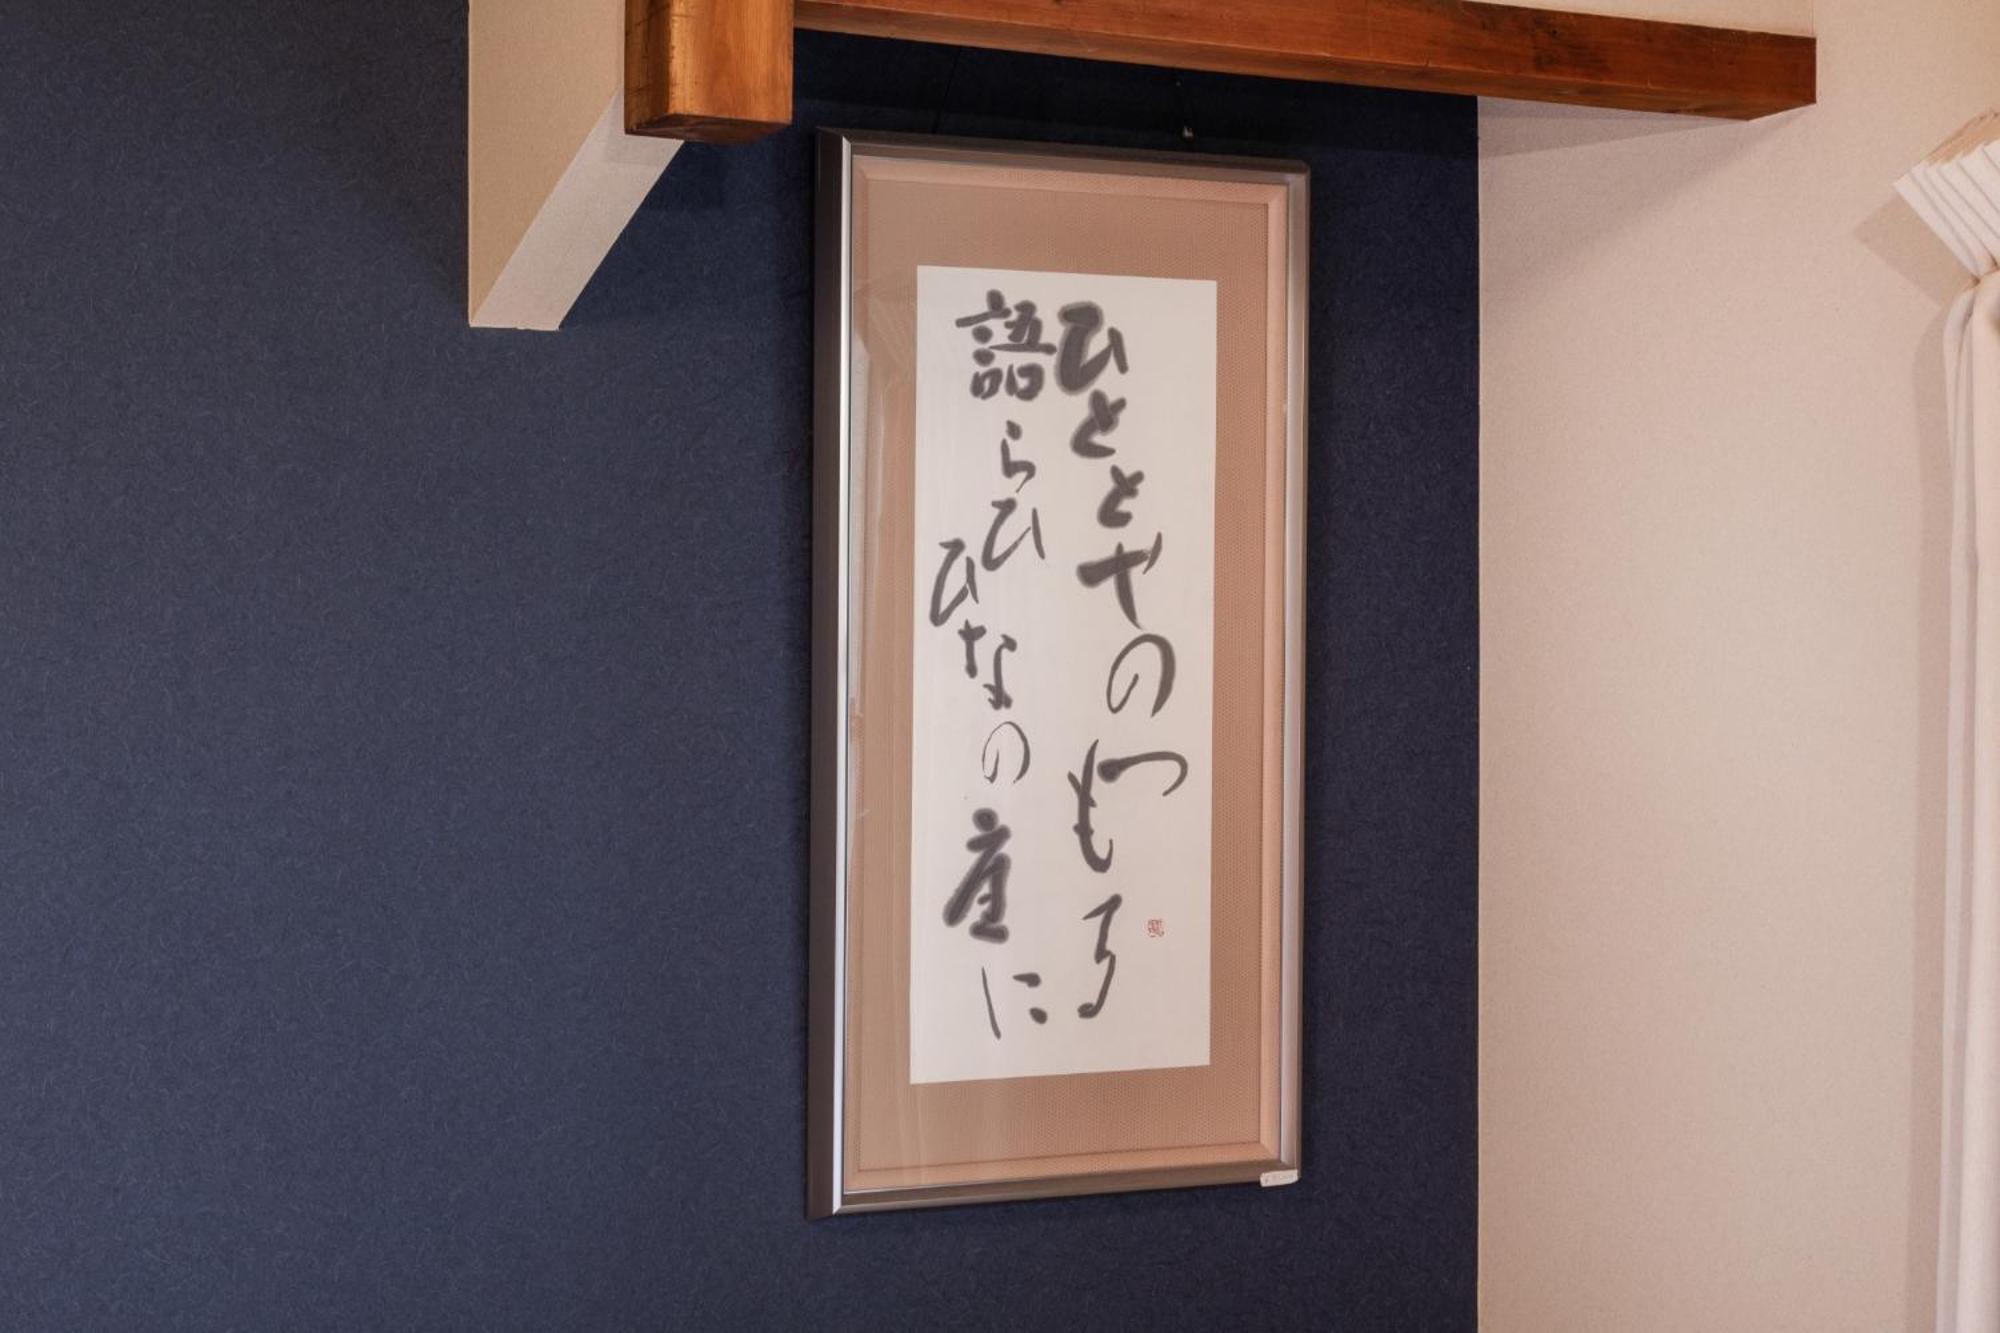 ひととやのつもる
語らひひなの座に